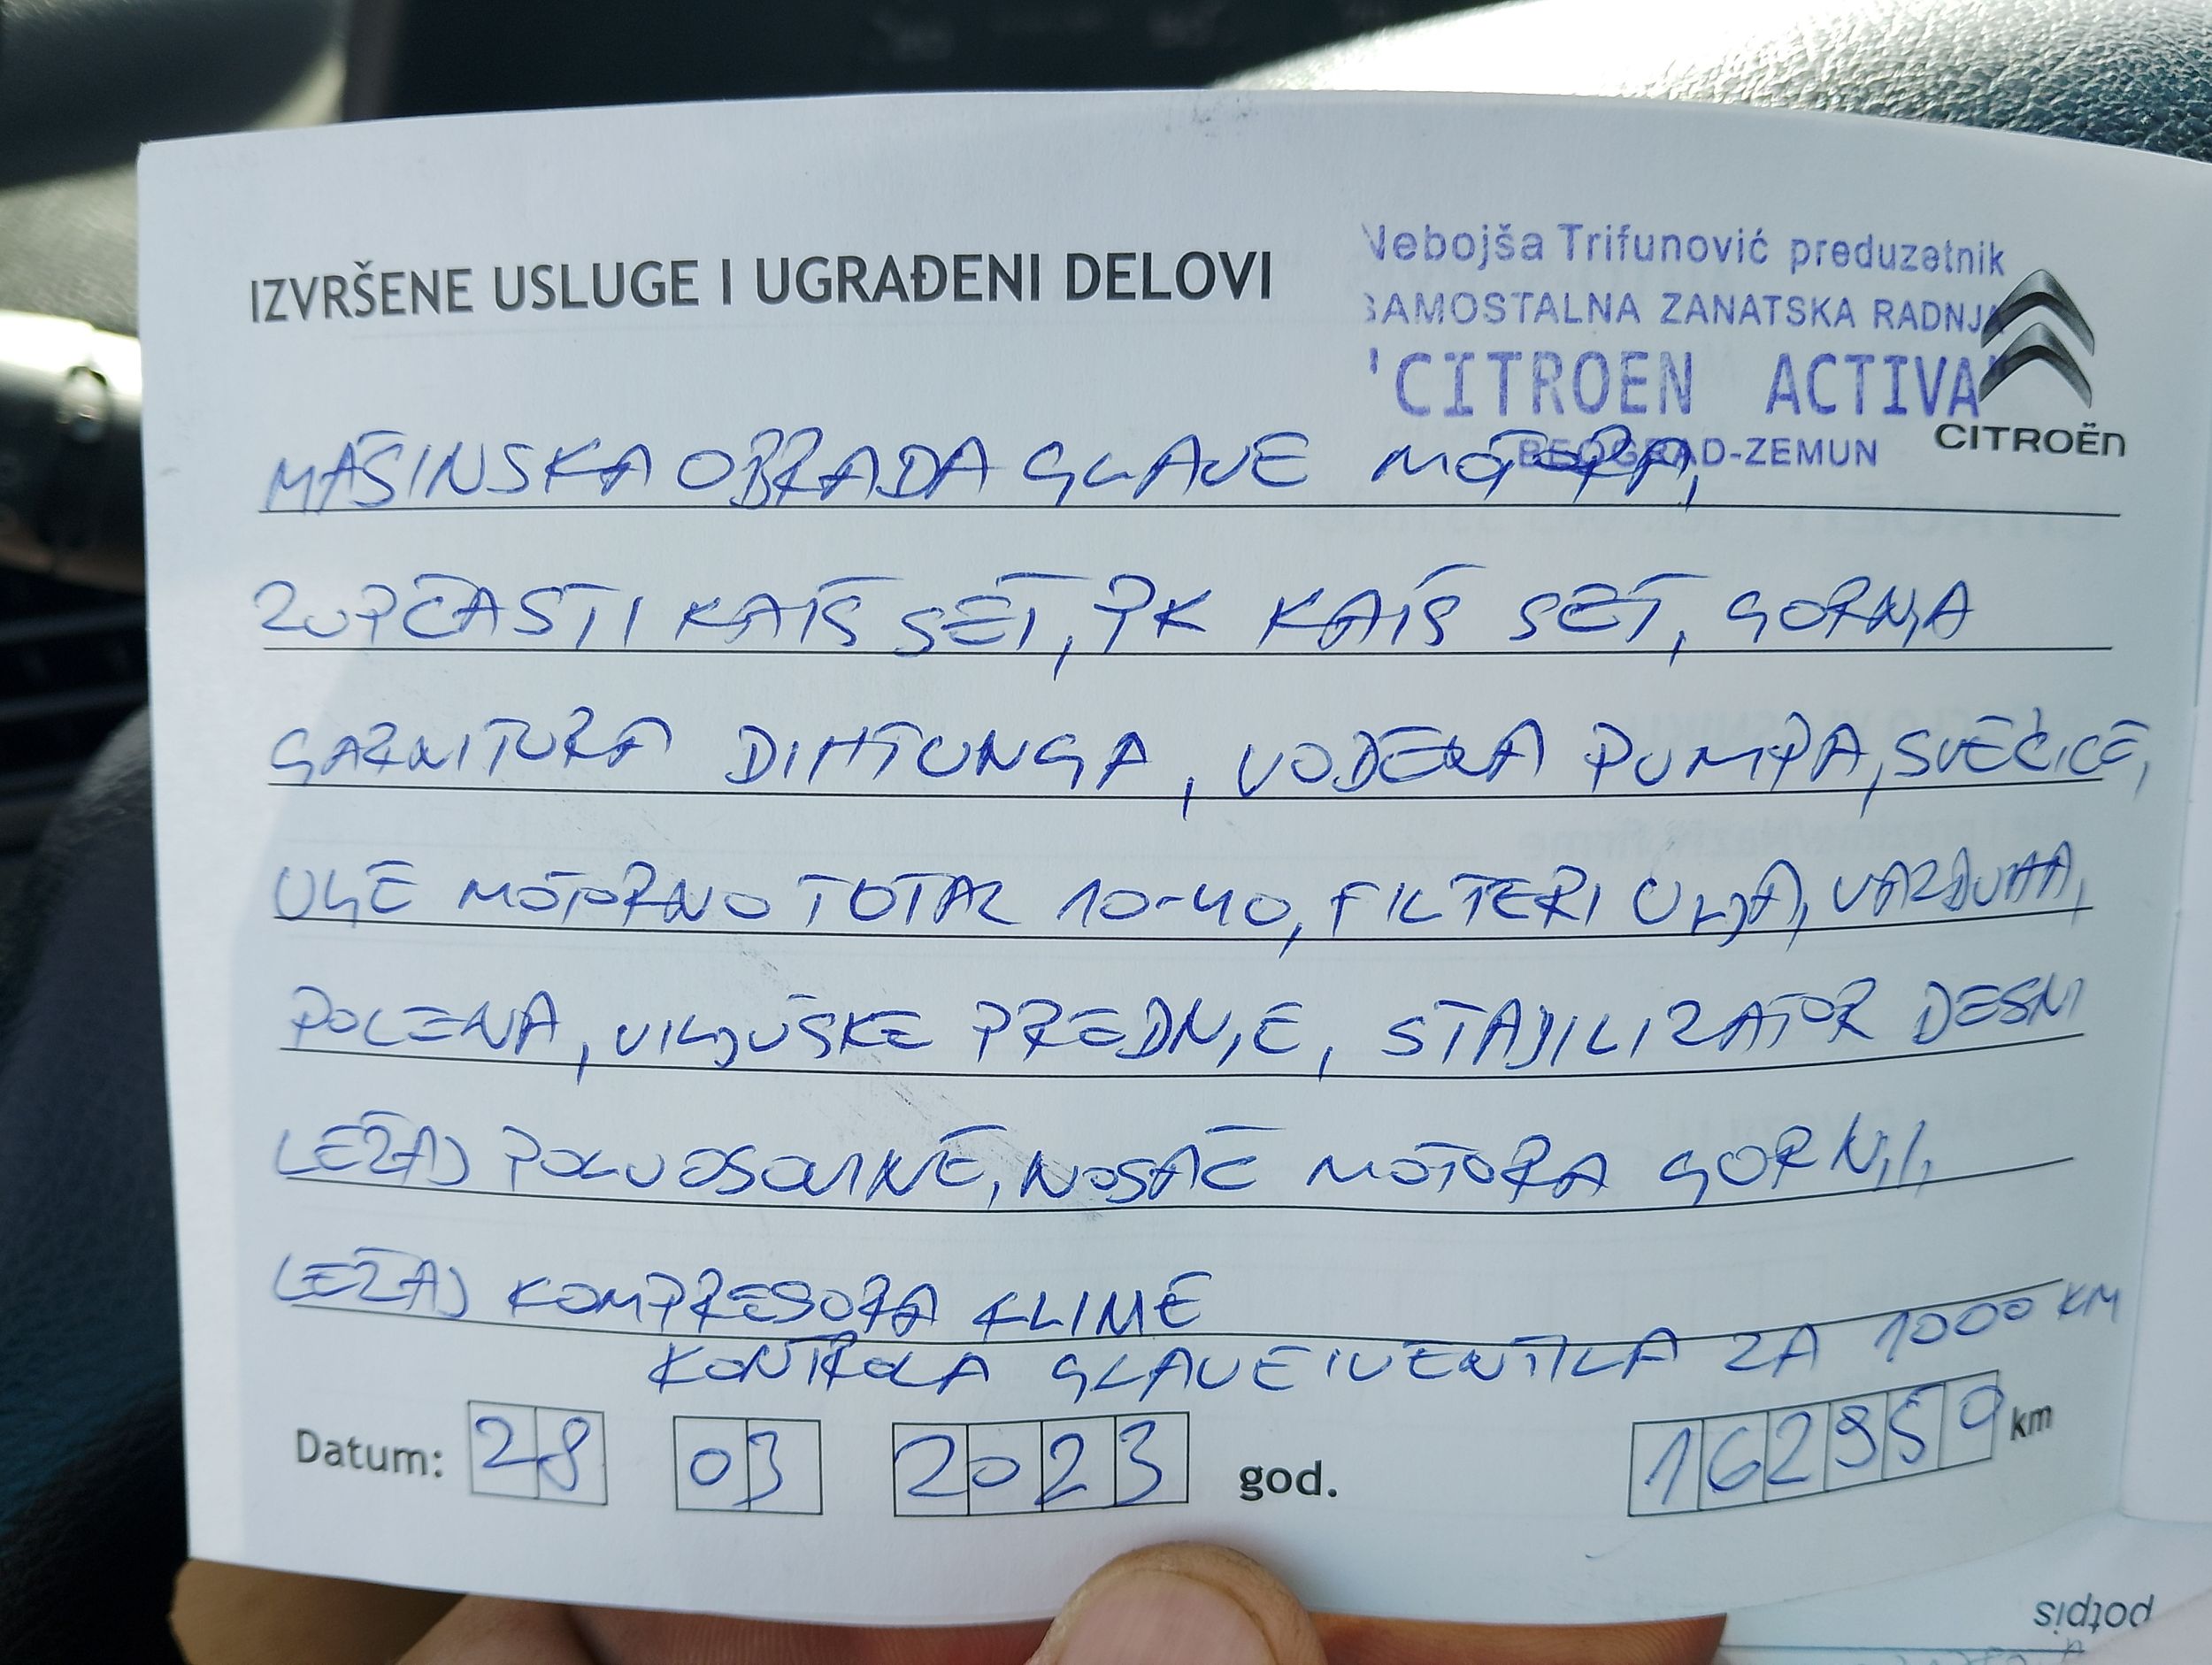 IZVRŠENE USLUGE I UGRAĐENI DELOVI
Nebojša Trifunović preduzetnik
SAMOSTALNA ZANATSKA RADNJA
"CITROEN ACTIVA"
BEOGRAD-ZEMUN
CITROËN
MAŠINSKA OBRADA GLAVE MOTORA,
ZUPČASTI KAIŠ SET, PK KAIŠ SET, GORNJA
GARNITURA DIHTUNGA, VODENA PUMPA, SVEĆICE,
ULJE MOTORNO TOTAL 10-40, FILTERI ULJA, VAZDUHA,
POLENA, VILJUŠKE PREDNJE, STABILIZATOR DESNI
LEŽAJ POLUOSOVINE, NOSAČ MOTORA GORNJI,
LEŽAJ KOMPRESORA KLIME
KONTROLA GLAVE I VENTILA ZA 1000 KM
Datum: 28 03 2023 god. 162950 km
potpis